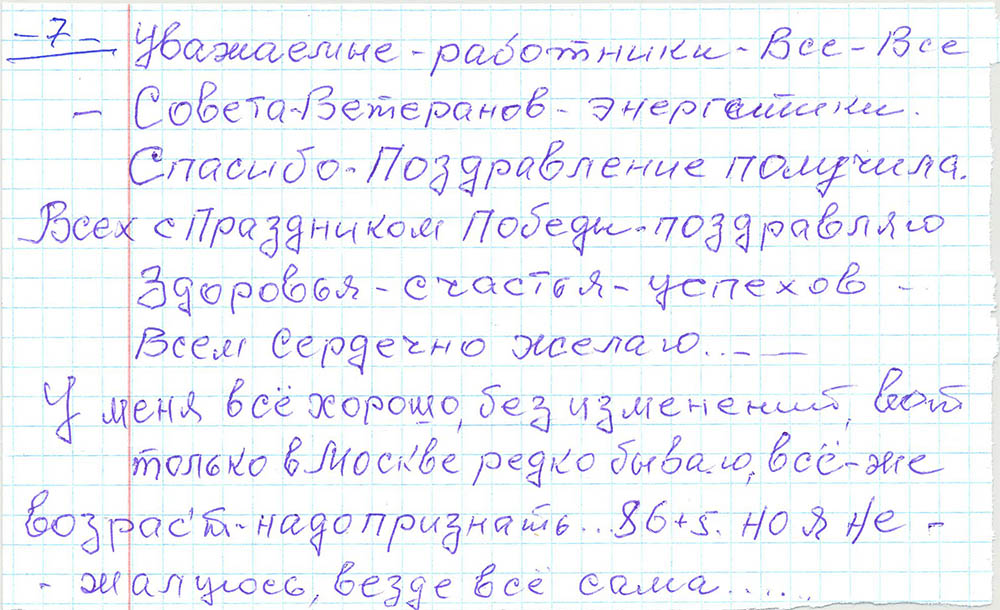 -7- Уважаемые - работники - Все - Все
- Совета - Ветеранов - энергетики.
Спасибо - Поздравление получила.
Всех с Праздником Победы - поздравляю
Здоровья - счастья - успехов -
Всем Сердечно желаю..--
У меня всё хорошо, без изменений, вот
только в Москве редко бываю, всё-же
возраст - надо признать... 86+5. но я не -
- жалуюсь, везде всё сама......